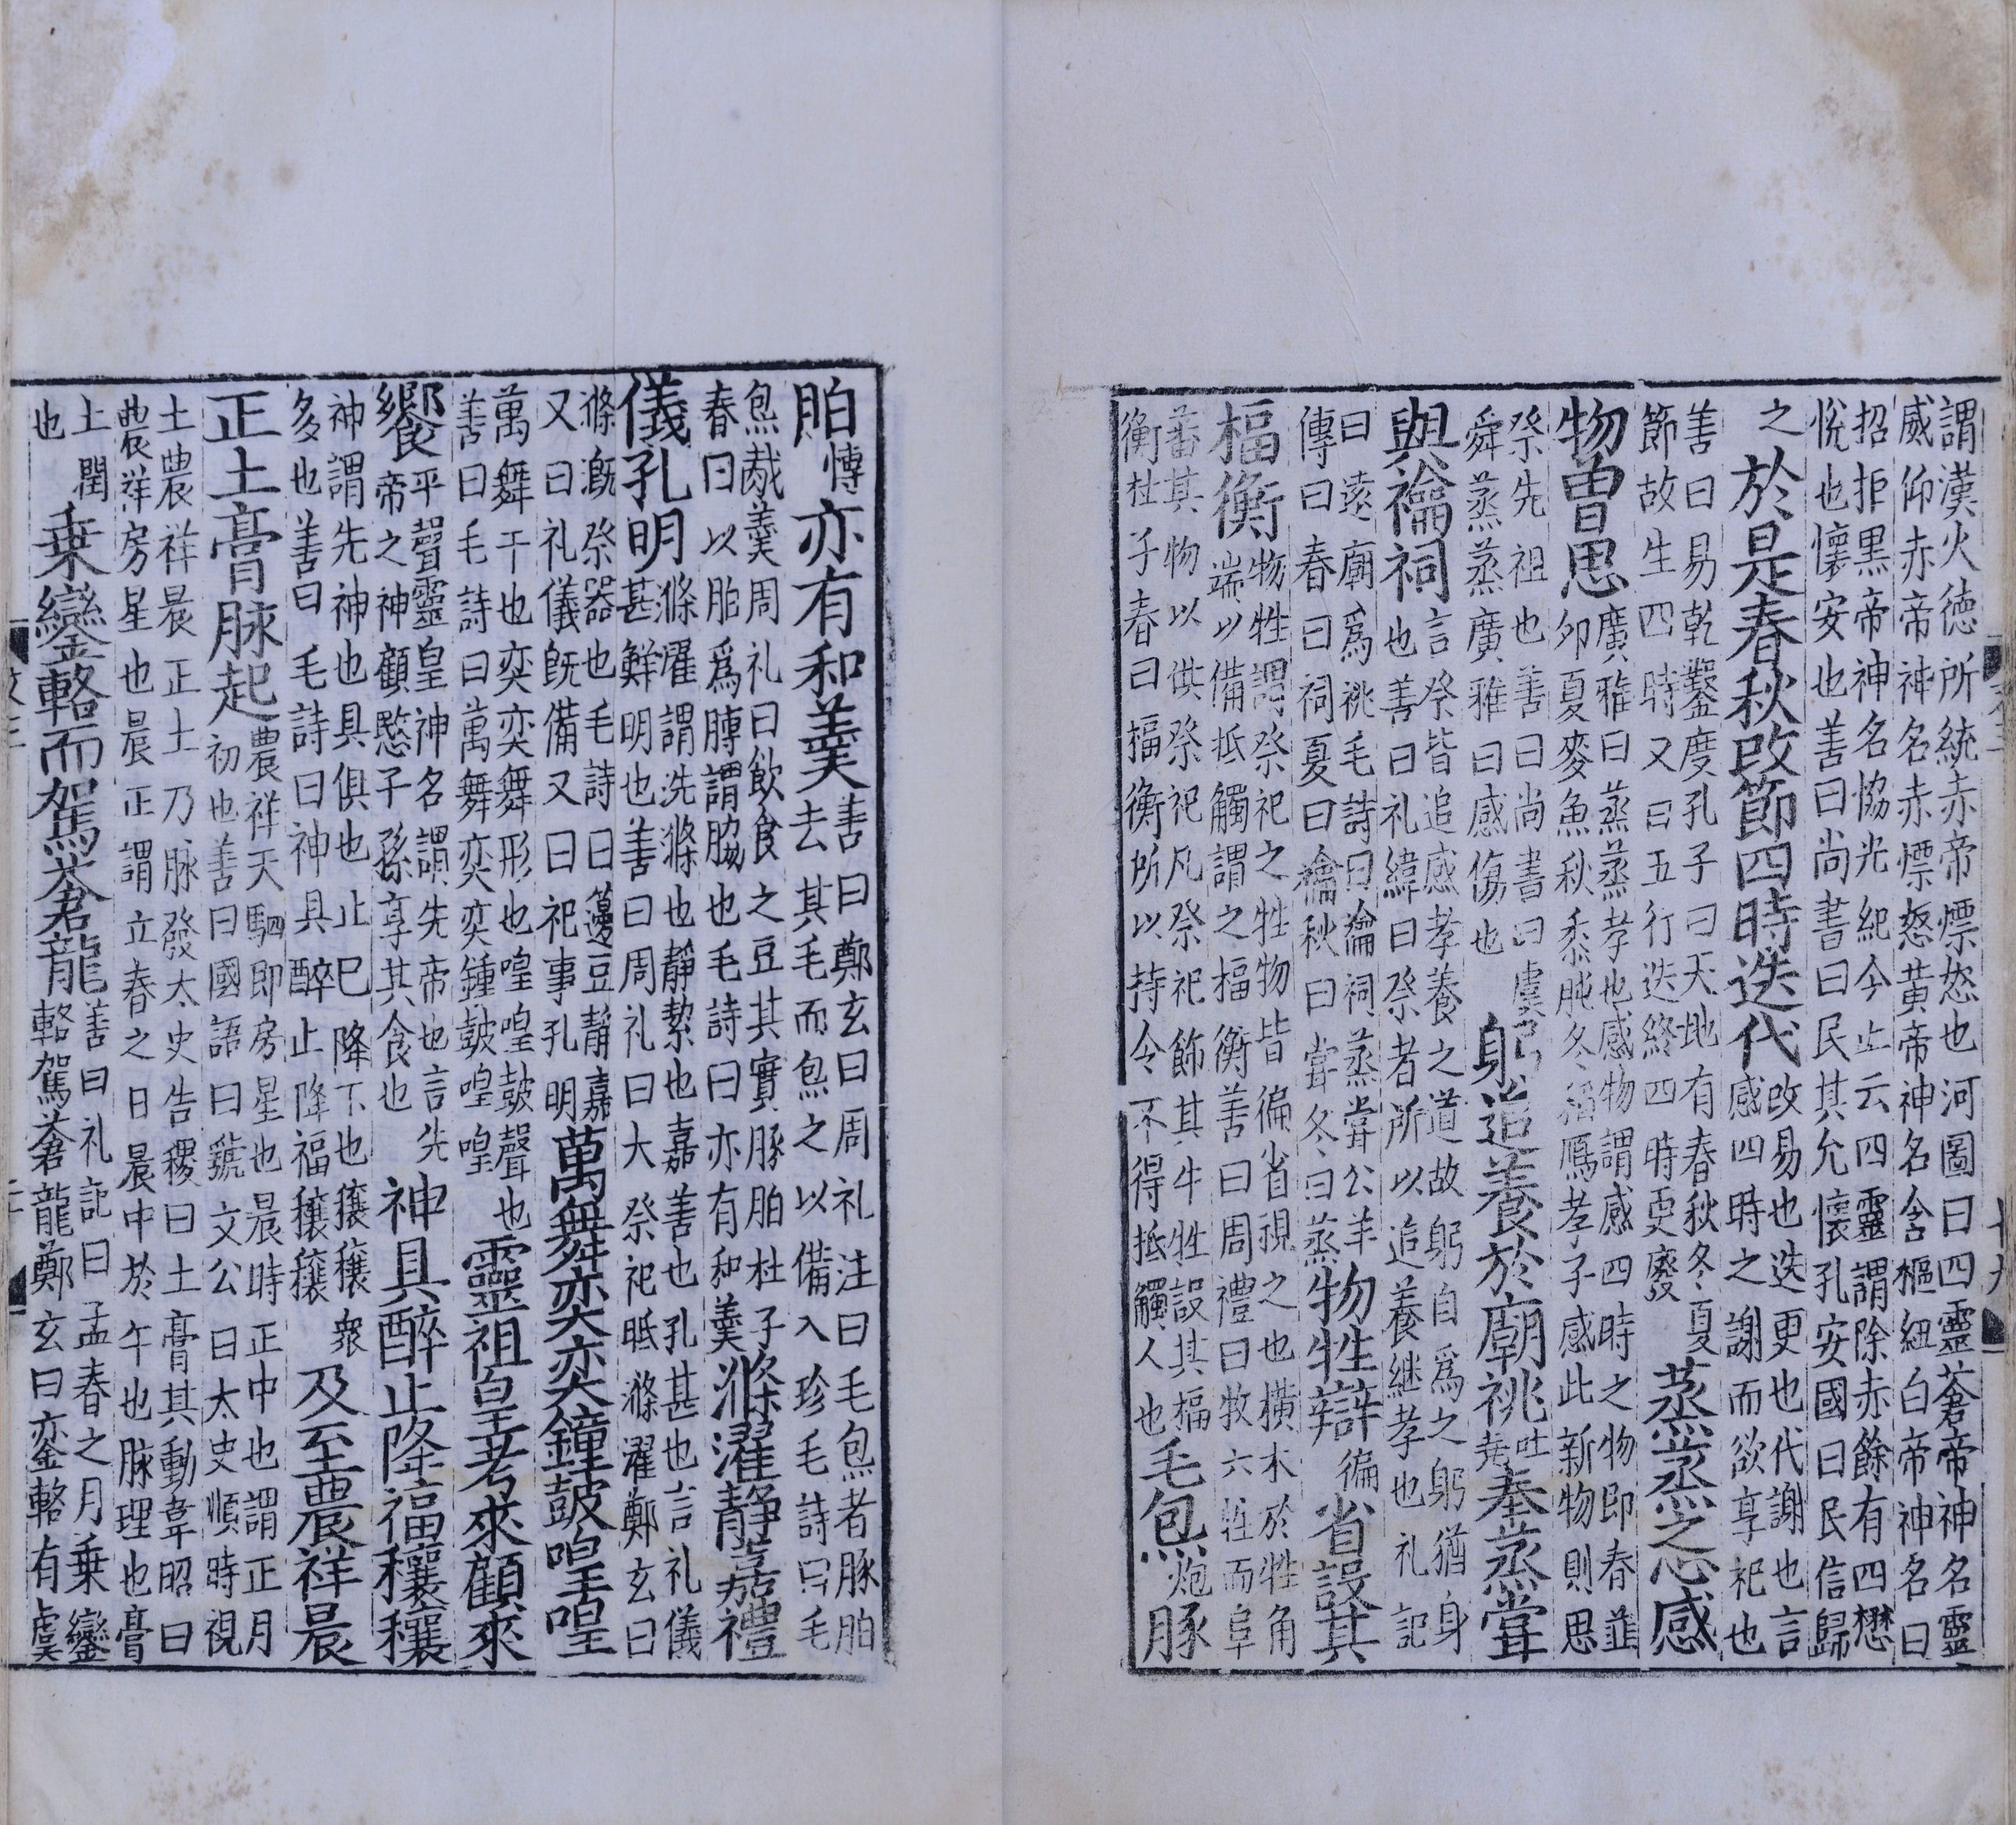 謂漢火德所統赤帝熛怒也河圖曰四靈蒼帝神名靈
威仰赤帝神名赤熛怒黃帝神名含樞紐白帝神名曰
招拒黑帝神名恊光紀今止云四靈謂除赤餘有四懋
悅也懷安也善曰尚書曰民其允懷孔安國曰民信歸
之於是春秋改節四時迭代改易也迭更也代謝也言感四時之謝而欲享祀也
善曰易乾鑿度孔子曰天地有春秋冬夏節故生四時又曰五行迭終四時更廢蒸蒸之心感
物曽思廣雅曰蒸蒸孝也感物謂感四時之物即春韮卵夏麥魚秋黍肫冬稻鴈孝子感此新物則思
祭先祖也善曰尚書曰虞舜蒸蒸廣雅曰感傷也躬追養於廟祧吐堯奉蒸甞
與禴祠言祭皆追感孝養之道故躬自爲之躬猶身也善曰礼緯曰祭者所以追養継孝也礼記
曰遠廟爲祧毛詩曰禴祠蒸甞公羊傳曰春曰祠夏曰禴秋曰甞冬曰蒸物牲辯徧省設其
楅衡物牲謂祭祀之牲物皆徧省視之也橫木於牲角端以備抵觸謂之楅衡善曰周禮曰牧六牲而阜
蕃其物以供祭祀凡祭祀飾其牛牲設其楅衡杜子春曰楅衡所以持令不得抵觸人也毛炰炮豚
胉慱亦有和羹善曰鄭玄曰周礼注曰毛炰者豚胉去其毛而炰之以備入珍毛詩曰毛
炰胾羹周礼曰飲食之豆其實豚胉杜子春曰以胉爲膊謂脇也毛詩曰亦有和羹滌濯靜嘉禮
儀孔明滌濯謂洗滌也靜絜也嘉善也孔甚也言礼儀甚鮮明也善曰周礼曰大祭祀眡滌濯鄭玄曰
滌漑祭器也毛詩曰籩豆靜嘉又曰礼儀旣備又曰祀事孔明萬舞奕奕鐘鼓喤喤
萬舞干也奕奕舞形也喤喤鼓聲也善曰毛詩曰萬舞奕奕鍾鼓喤喤靈祖皇考來顧來
饗平聲靈皇神名謂先帝也言先帝之神顧愍子孫享其食也神具醉止降福穰穰
神謂先神也具俱也止已降下也穰穰衆多也善曰毛詩曰神具醉止降福穰穰及至農祥晨
正土膏脉起農祥天駟即房星也晨時正中也謂正月初也善曰國語曰虢文公曰太史順時視
土農祥晨正土乃脉發太史告稷曰土膏其動韋昭曰農祥房星也晨正謂立春之日晨中於午也脉理也膏
土潤也乗鑾輅而駕蒼龍善曰礼記曰孟春之月乗鑾輅駕蒼龍鄭玄曰鑾輅有虞